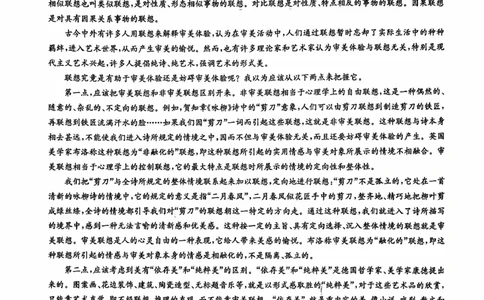 相似联想也叫类似联想,是对性质、形态相似事物的联想。对比联想是对性质、特点相反的事物的联想。因果联想
是对具有因果关系事物的联想。
古今中外有许多人用联想来解释审美体验,认为在审美活动中,人们通过联想暂时忘却了实际生活中的种种
羁绊,进入艺术世界,从而产生审美的愉悦。然而,也有许多理论家和艺术家认为审美体验与联想无关,特别是现
代主义艺术兴起,许多人提倡纯诗、纯艺术,强调艺术的形式美。
联想究竟是有助于审美体验还是妨碍审美体验呢?我以为应该从以下两点来把握它。
第一点,应该把审美联想和非审美联想区别开来。非审美联想相当于心理学上的自由联想,这是一种偶然的、
随意的、杂乱的、不定向的联想。例如,贺知章《咏柳》诗中的“剪刀”意象,人们可以由剪刀联想到制造剪刀的铁匠,
再联想到铁匠流满汗水的脸……如果我们因“剪刀”一词而引起这些联想,这就是非审美联想。这种联想与诗本身
相去甚远,不能使我们进入诗所规定的情境之中,因而不但与审美体验无关,而且还要妨碍审美体验的产生。英国
美学家布洛称这种联想为“非融化的”联想,即这种联想所引起的实用情感与审美对象所展示的情境不相融合。审
美联想相当于心理学上的控制联想,它的最大特点是联想时所展示的情境的定向性和整体性。
我们把“剪刀”与全诗所规定的整体情境联系起来加以联想,定向地进行联想:“剪刀”不是孤立的,它处在一首
清新的咏柳诗的情境中,它的规定的意义是指“二月春风”,二月春风似花匠手中的剪刀,整齐地、精巧地把柳叶剪
成绿丝绦,全诗的情境都引导我们对“剪刀”的联想朝这一特定的方向走。通过这种联想,我们就进入了诗所描写
的境界中,感到一种无法言喻的清新感和优美感。这种按一定的主旨、具有定向选择、沉入整体情境的联想就是审
美联想。审美联想是人的心灵自由的一种表现,它给人带来美感的愉悦。布洛称审美联想为“融化的”联想,即这
种联想所引起的情感与审美对象本身的情感是相融化的,不是隔离、孤立的。
第二点,应该考虑到美有“依存美”和“纯粹美”的区别。“依存美”和“纯粹美”是德国哲学家、美学家康德提出
来的。图案画、花边装饰、建筑、陶瓷造型、无标题音乐等,就是以形式感取胜的“纯粹美”,对于这些艺术品的欣赏,